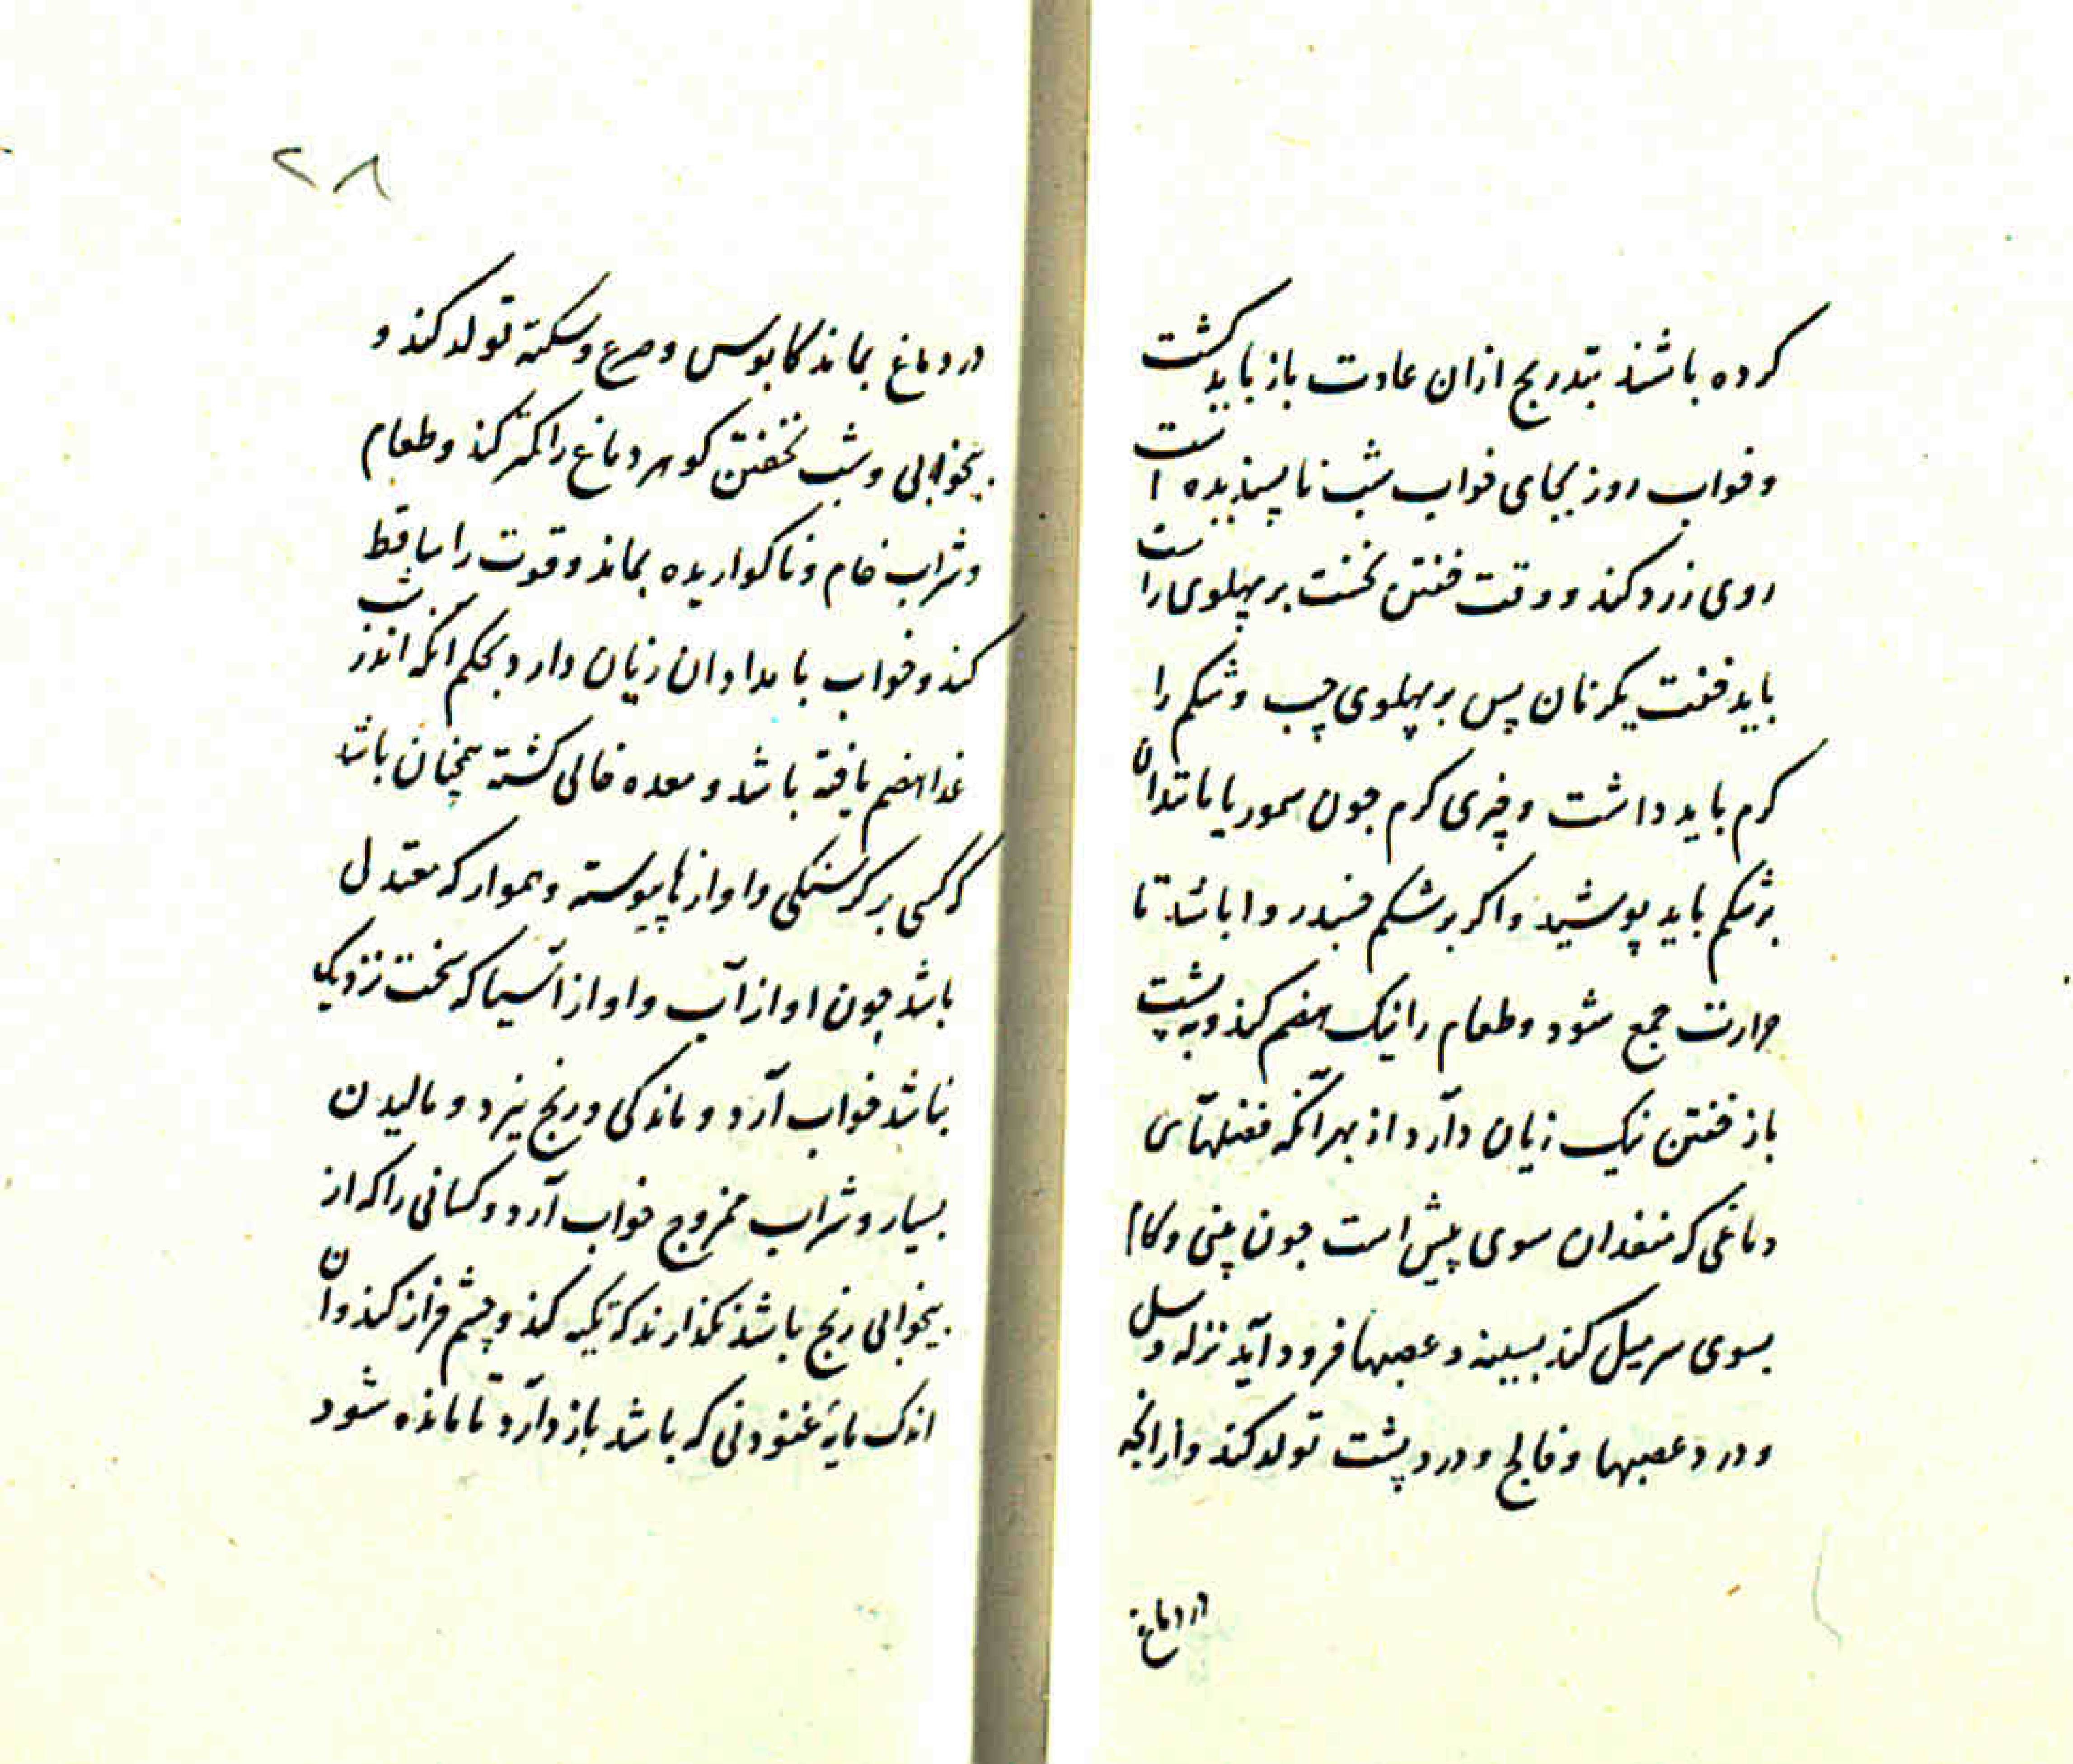 کرده باشند بتدریج ازان عادت باز باید کشت
و خواب روز بجای خواب شب ناپسندیده است
روی زرد کند و وقت خفتن نخست بر پهلوی راست
باید خفت یکزمان پس بر پهلوی چپ و شکم را
کرم باید داشت و چیزی کرم چون سمور یا مانند ان
بر شکم باید پوشید و اکر بر شکم خسبد روا باشد تا
حرارت جمع شود و طعام را نیک هضم کند و به پشت
باز خفتن نیک زیان دارد از بهر آنکه فضلهآی
دماغی که منفذ ان سوی پیش است چون بینی و کام
بسوی سر میل کند بسینه و عصبها فرود آید نزله و سل
و درد عصبها و فالج و درد پشت تولد کند و ازانچه
در دماغ
۲۸
در دماغ بماند کابوس و صرع و سکته تولد کند و
بیخوابی و شب نخفتن کوهر دماغ را کمتر کند و طعام
و شراب خام و ناکواریده بماند و قوت را ساقط
کند و خواب بامدادان زیان دارد بحکم انکه اندر شب
غدا هضم یافته باشد و معده خالی کشته همچنان باشد
کرسنکی و اوازها پیوسته و هموار که معتدل
باشد چون اواز آب و اواز آسیا که سخت نزدیک
نباشد خواب آرد و ماندکی و رنج ببرد و مالیدن
بسیار و شراب ممزوج خواب آرد و کسانی را که از
بیخوابی رنج باشد نکذارند که تکیه کند و چشم فراز کند و ان
اندک مایهٔ غنودنی که باشد باز دارد تا مانده شود